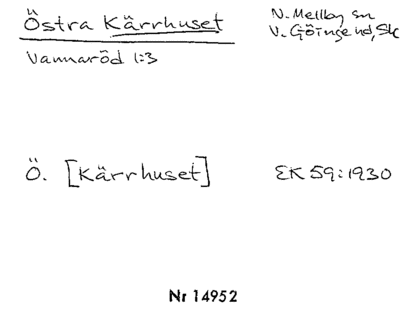 Östra Kärrhuset
N. Mellby sn
V. Göinge hd, Sk
Vannaröd 1:3
Ö. [Kärrhuset]
EK 59:1930
Nr 14952